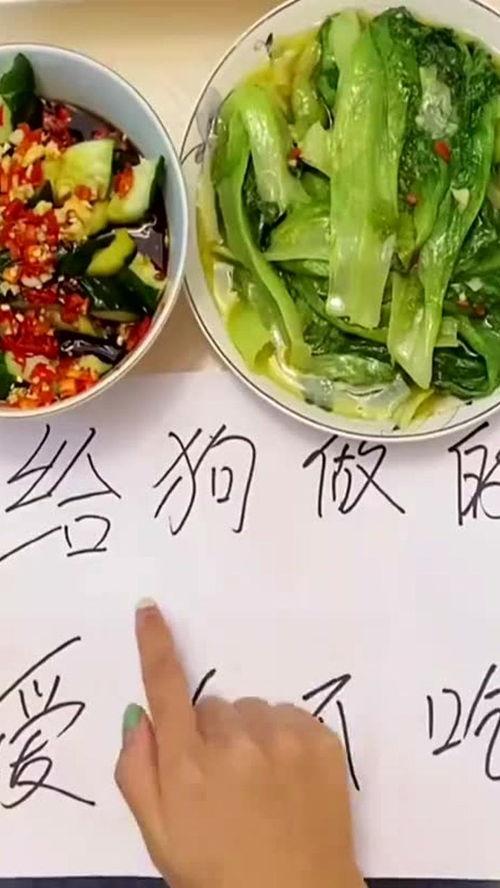 给狗做的
爱不吃